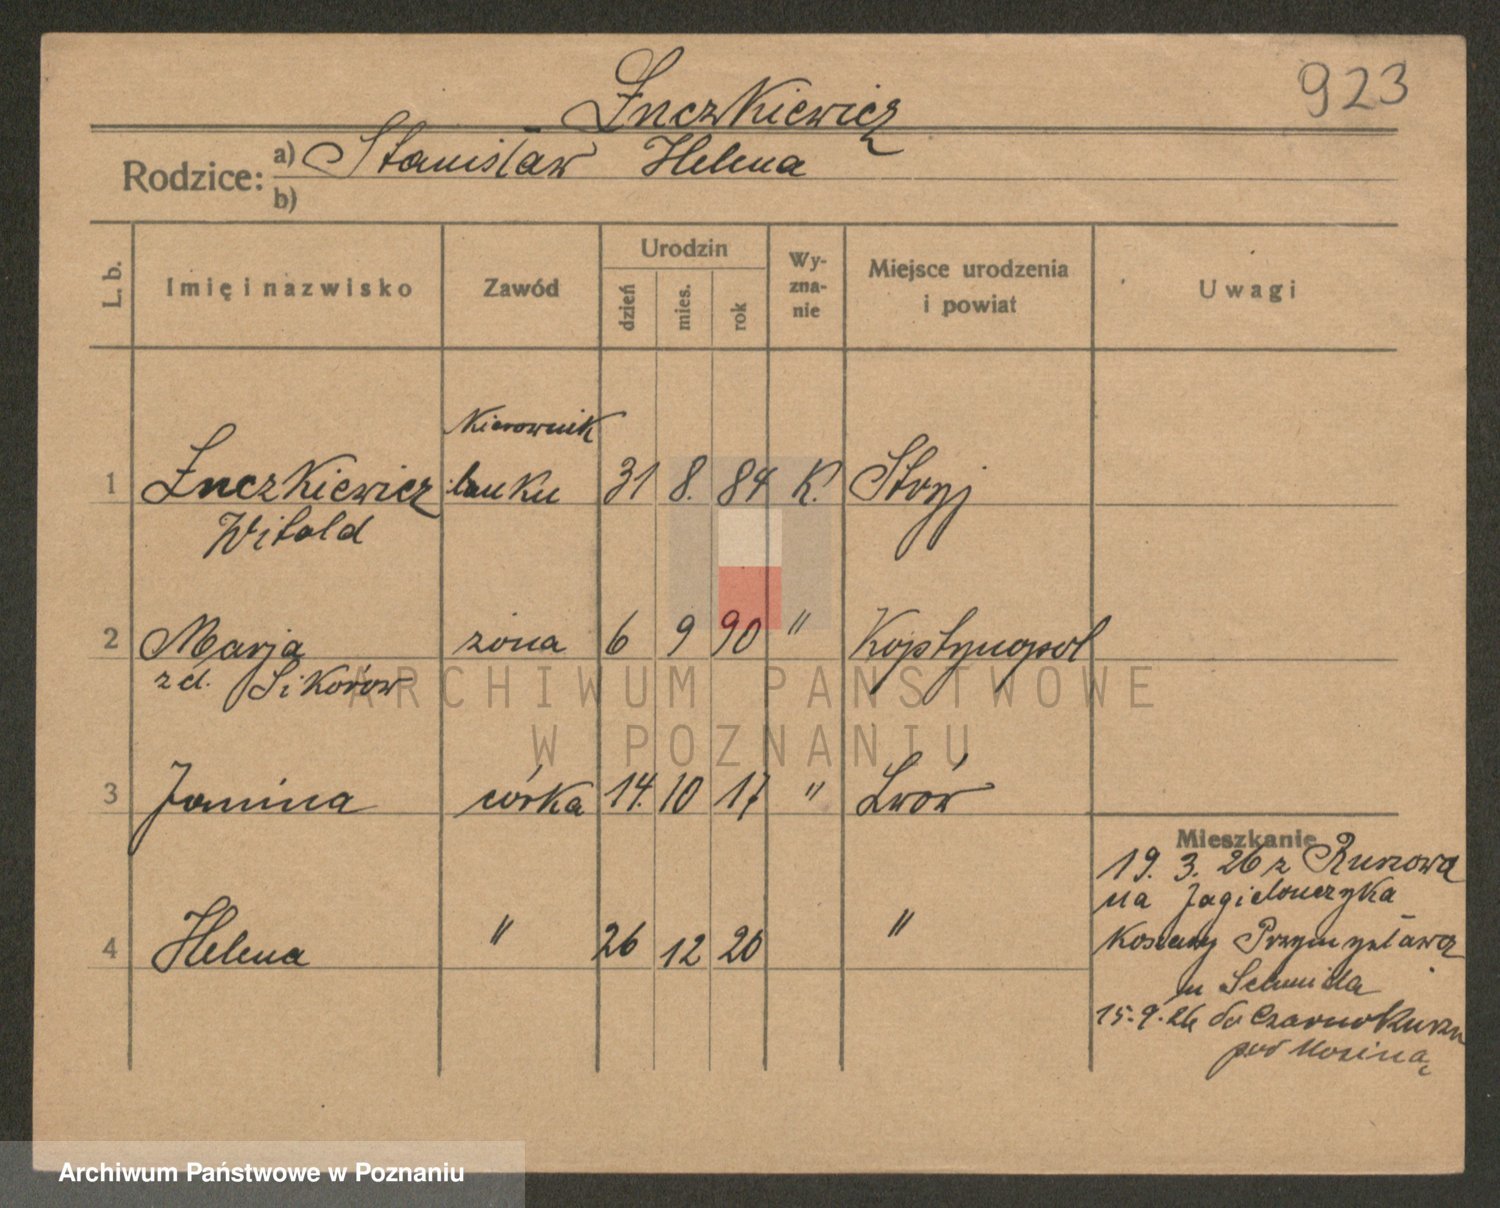 923
Łuczkiewicz
Rodzice: a) Stanisław Helena
b)
L. b. Imię i nazwisko Zawód Urodzin dzień mies. rok Wyznanie Miejsce urodzenia i powiat Uwagi
Kierownik
1 Łuczkiewicz banku 31 8. 84 K. Stryj
Witold
2 Marja żona 6 9 90 " Koptynopol
zd. Sikorów
3 Janina córka 14. 10 17 " Lwów
Mieszkanie
19. 3. 26 z
na Jagielończyka
4 Helena " 26 12 20 "
Koszary Przemysława
m Schmidta
15.9.26 do
pod Mosiną
ARCHIWUM PAŃSTWOWE
W POZNANIU
Archiwum Państwowe w Poznaniu